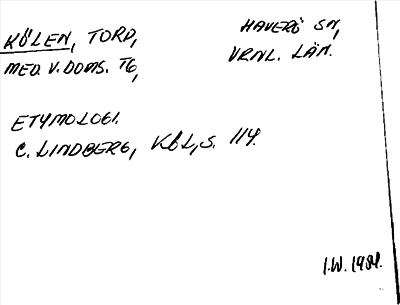 KÖLEN, TORP,
HAVERÖ SN,
MED. V. DOMS. TG,
VRNL. LÄN.
ETYMOLOGI.
C. LINDBERG, KBL, S. 114.
I.W. 1984.